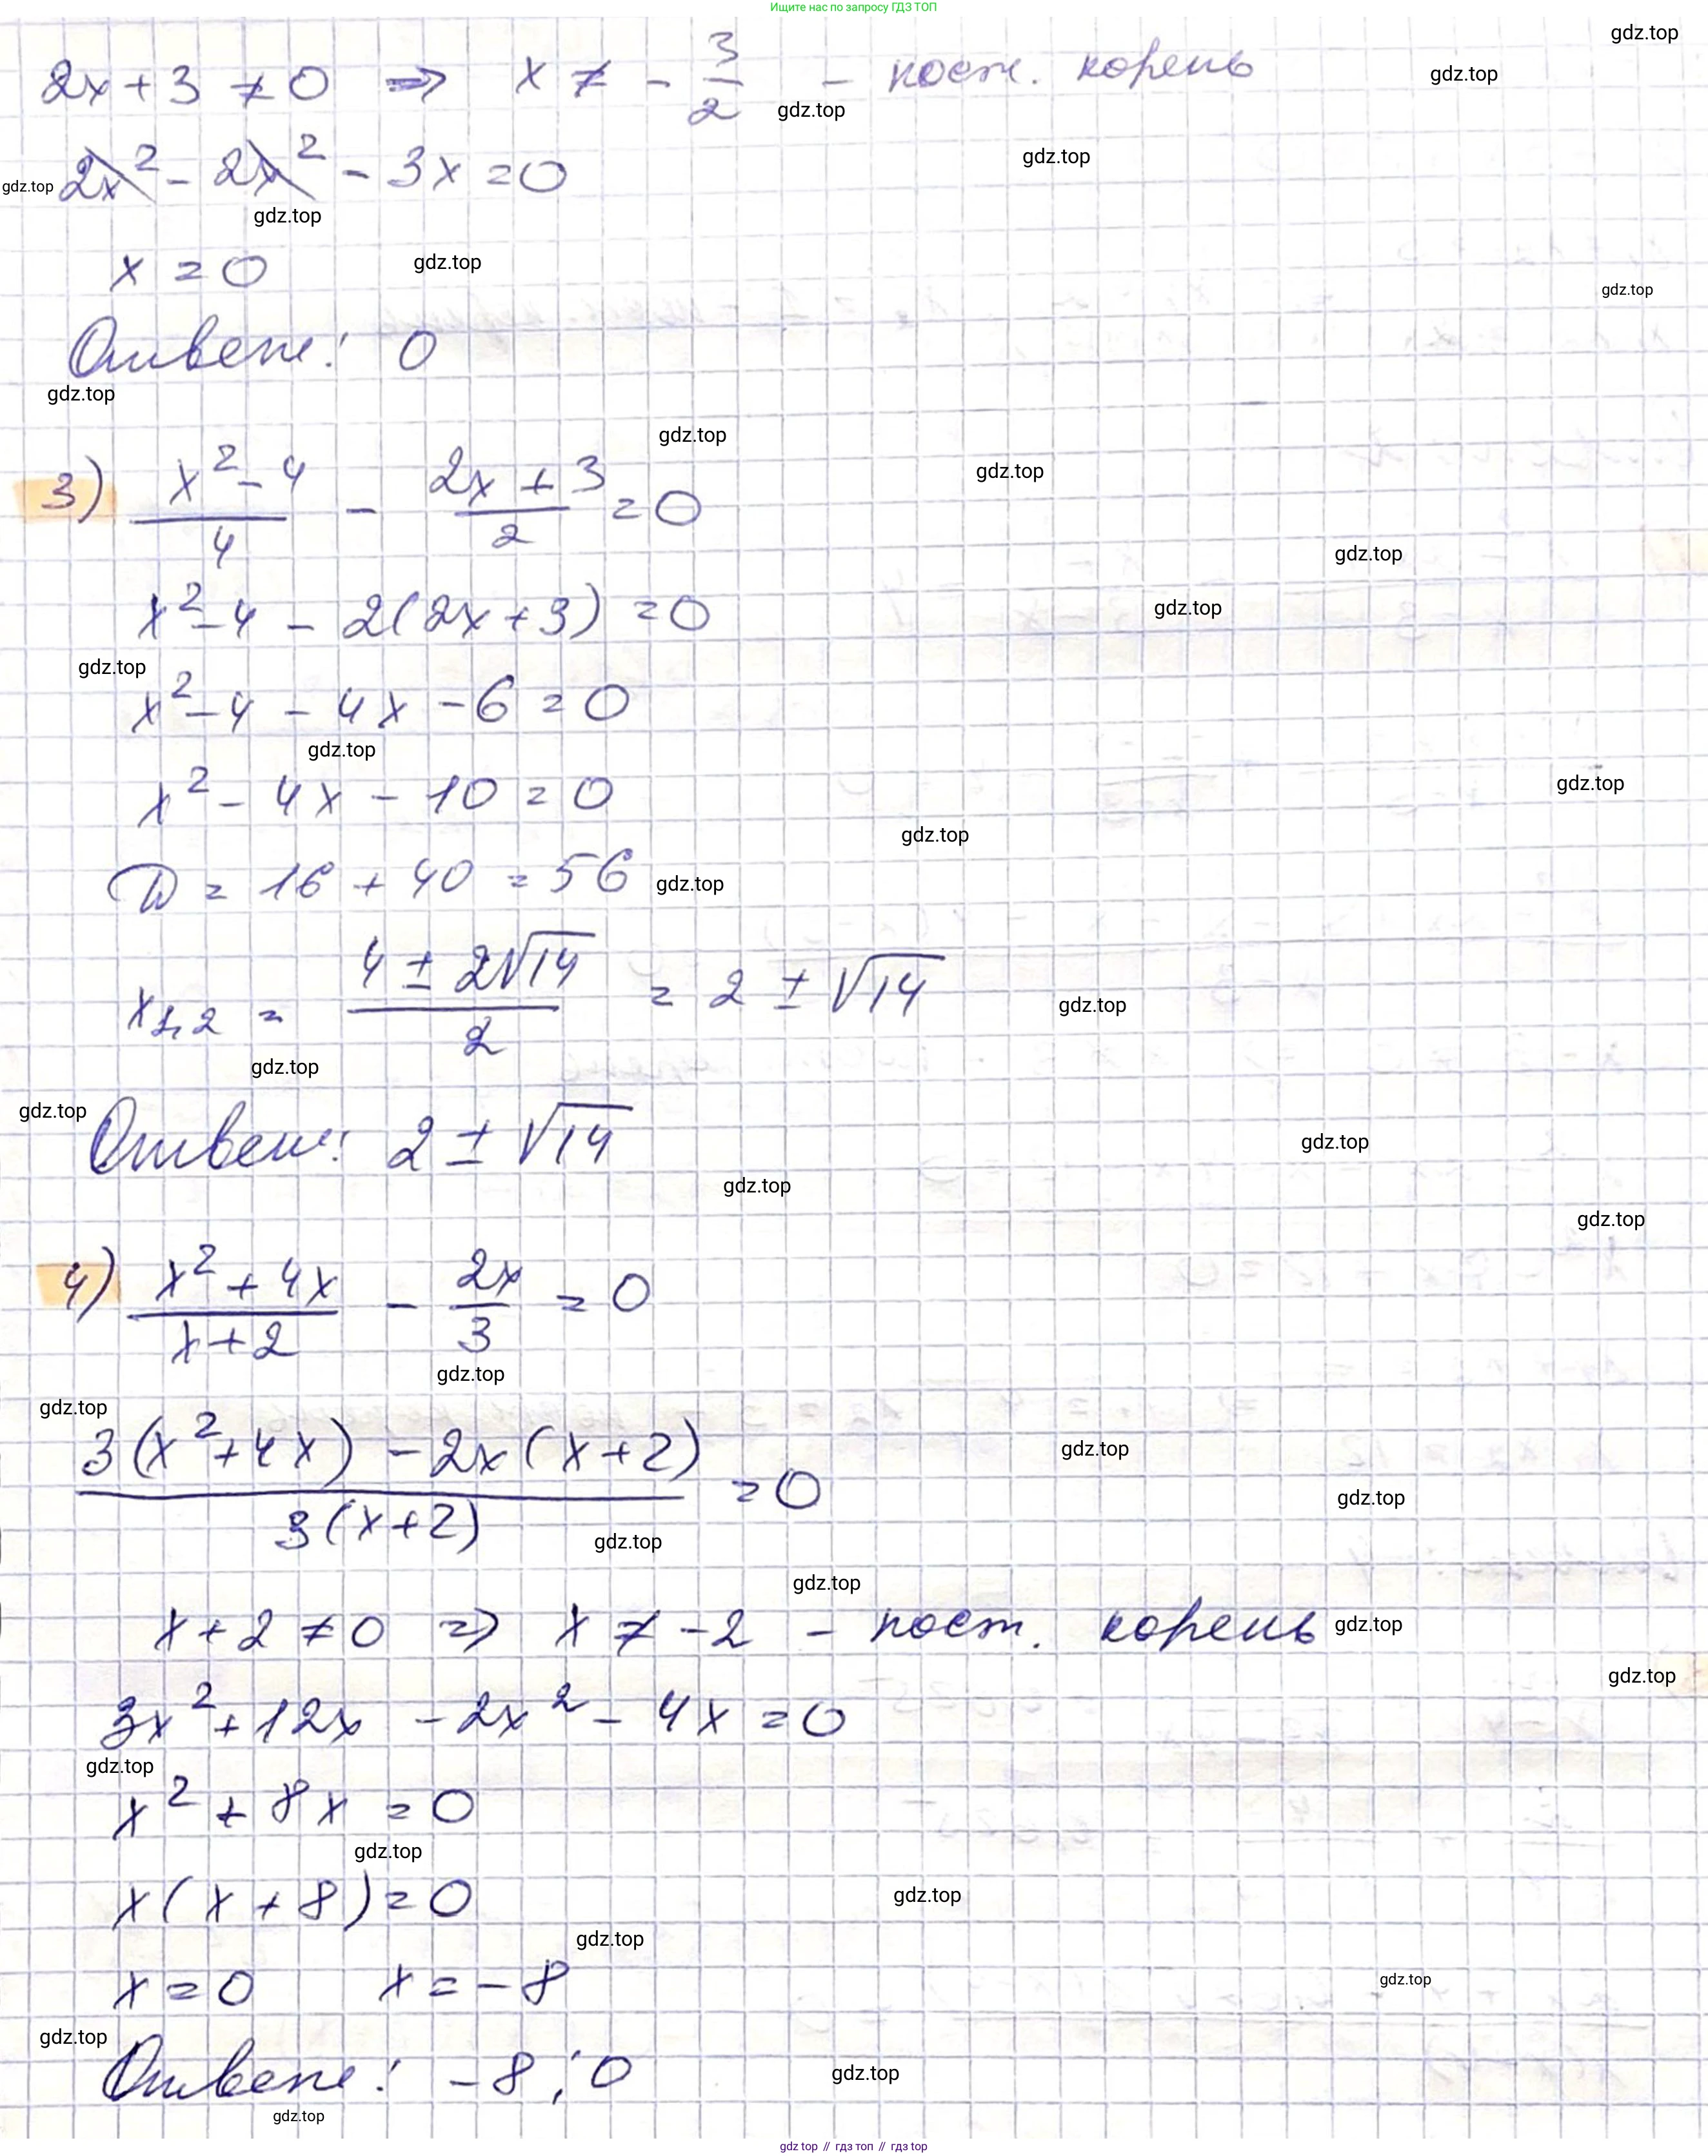 Ищите нас по запросу ГДЗ ТОП
gdz.top
2x + 3 ≠ 0 ⇒ x ≠ - 3/2 - пост. корень
gdz.top
gdz.top
gdz.top
2x² - 2x² - 3x = 0
gdz.top
gdz.top
x = 0
gdz.top
gdz.top
Ответ: 0
gdz.top
gdz.top
3) (x² - 4)/4 - (2x + 3)/2 = 0
gdz.top
gdz.top
x² - 4 - 2(2x + 3) = 0
gdz.top
gdz.top
x² - 4 - 4x - 6 = 0
gdz.top
x² - 4x - 10 = 0
gdz.top
gdz.top
D = 16 + 40 = 56
gdz.top
x1,2 = (4 ± 2√14)/2 = 2 ± √14
gdz.top
gdz.top
gdz.top
Ответ: 2 ± √14
gdz.top
gdz.top
gdz.top
4) (x² + 4x)/(x + 2) - 2x/3 = 0
gdz.top
gdz.top
(3(x² + 4x) - 2x(x + 2))/(3(x + 2)) = 0
gdz.top
gdz.top
gdz.top
gdz.top
x + 2 ≠ 0 ⇒ x ≠ -2 - пост. корень
gdz.top
gdz.top
3x² + 12x - 2x² - 4x = 0
gdz.top
x² + 8x = 0
gdz.top
x(x + 8) = 0
gdz.top
gdz.top
x = 0 x = -8
gdz.top
gdz.top
Ответ: -8; 0
gdz.top
gdz.top
gdz top // гдз топ // gdz top